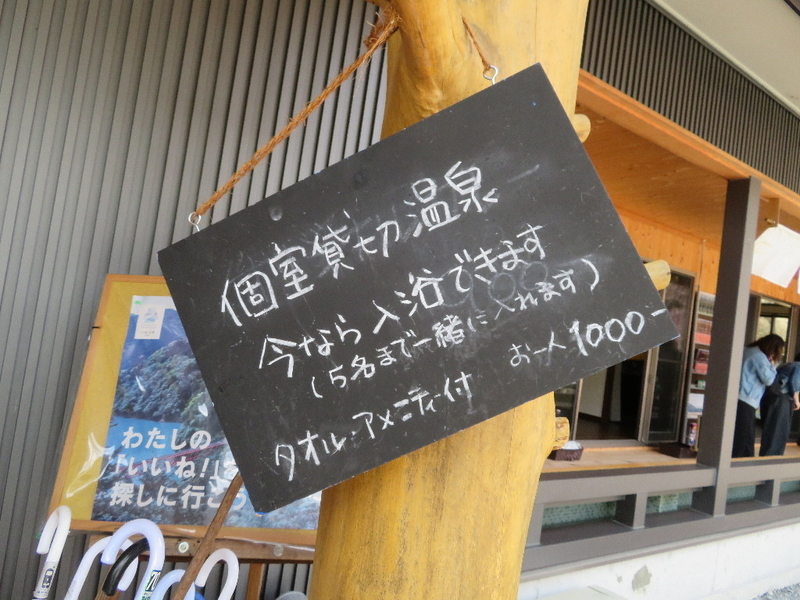 個室貸切温泉
今なら入浴できます
(5名まで一緒に入れます)
お一人1000-
タオル・アメニティー付
わたしの
「いいね!」
探しに行こう